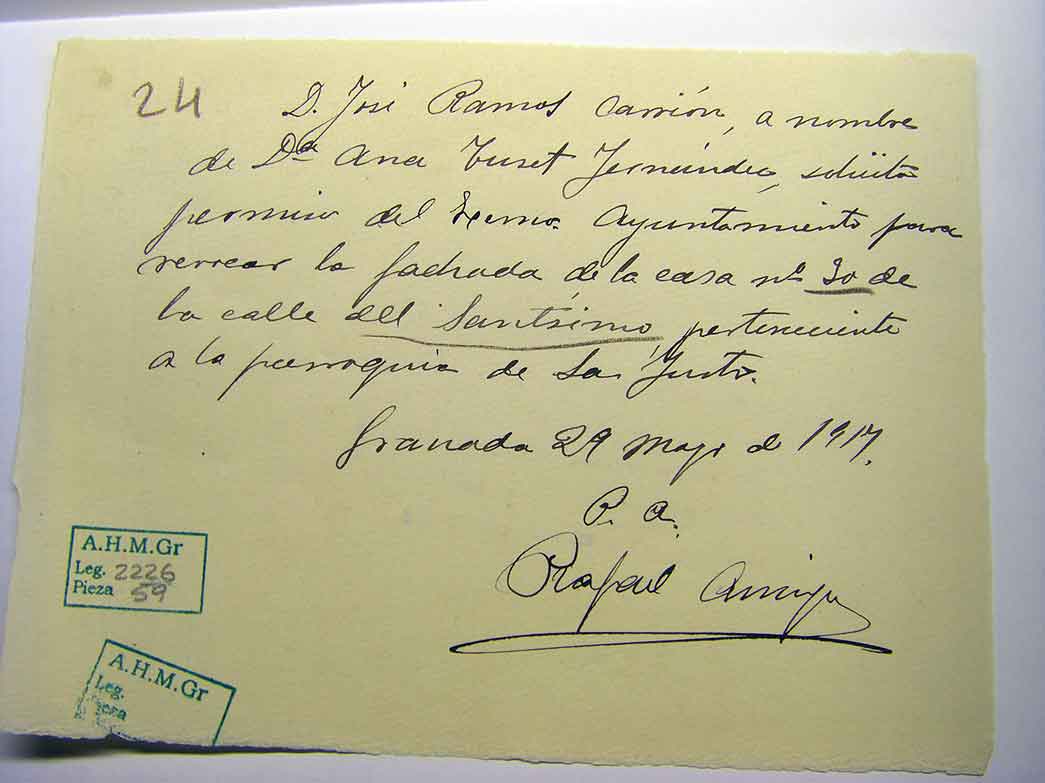 24
D. José Ramos Carrión, a nombre
de Dª Ana Tuset Fernández, solicita
permiso del Excmo. Ayuntamiento para
revocar la fachada de la casa nº 30 de
la calle del Santísimo, perteneciente
a la parroquia de San Justo.
Granada 29 Mayo de 1917.
P. A.
Rafael
A.H.M.Gr
Leg. 2226
Pieza 59
A.H.M.Gr
Leg.
Pieza